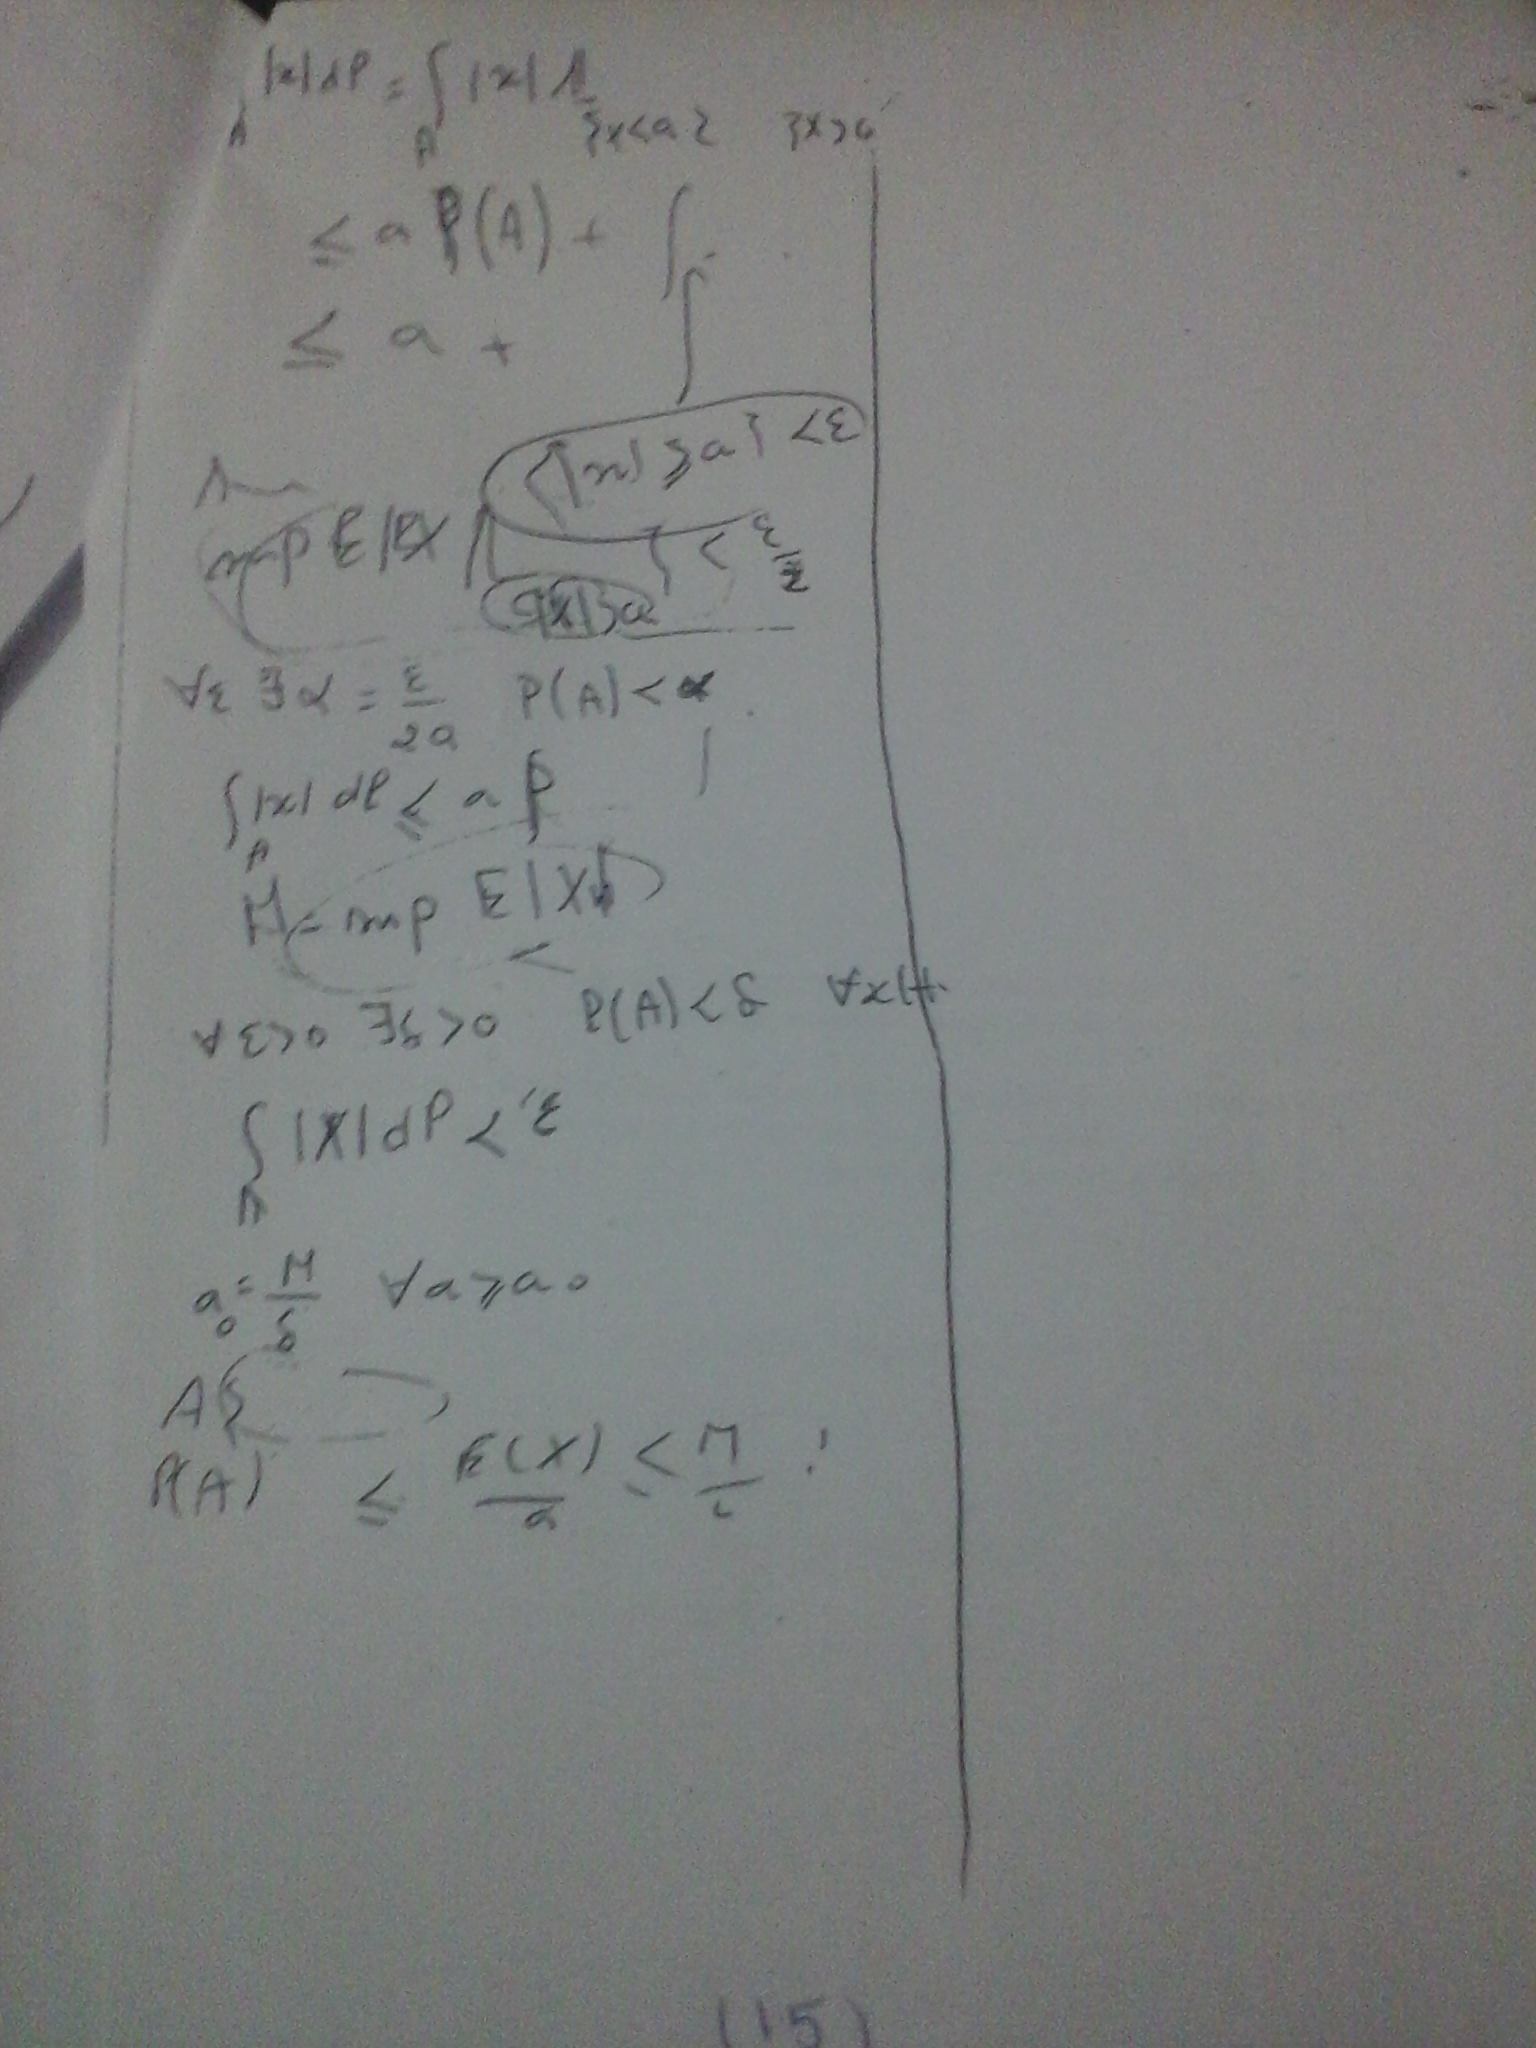 ∫_A |x| dP = ∫_A |x| 1_{x<a} {x>a
≤ a P(A) + ∫
≤ a + ∫
{|x| ≥ a} < ε
sup E|X| ∫_{|X|≥a} < ε/2
∀ε ∃α = ε/2a P(A) < α
∫_A |x| dP ≤ a P
M = sup E|X|
∀ε>0 ∃δ>0 P(A) < δ ∀X
∫_A |X| dP < ε
a₀ = M/δ ∀a ≥ a₀
A {
P(A) ≤ E(X)/a ≤ M/
(15)